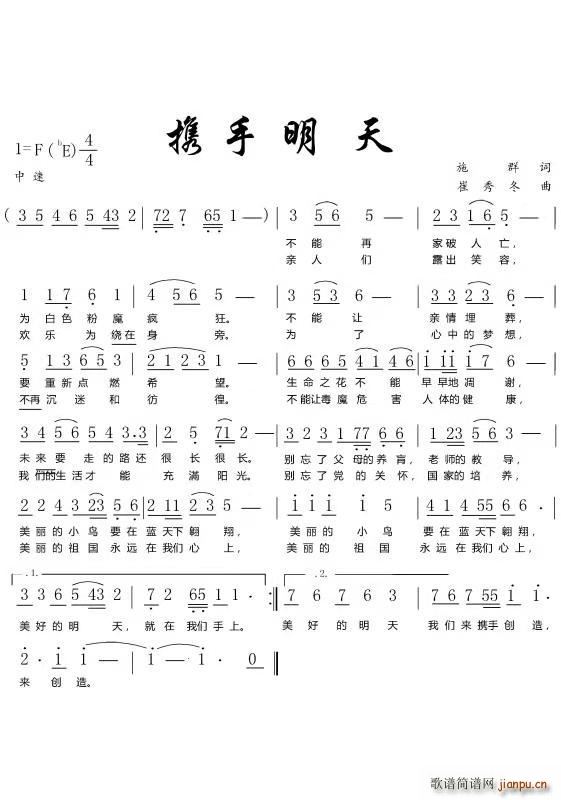 携手明天
1=F(♭E) 4/4
中速
施 群 词
崔秀冬 曲
( 3 5 4 6 5 43 2 | 72 7 65 1 — ) | 3 56 5 — | 2 3 1 6 5 — |
不能再 家破人亡,
亲人们 露出笑容,
1 1 7 6 1 | 4 5 6 5 — | 3 53 6 — | 3 3 2 3 6 — |
为白色粉魔疯狂。 不能让 亲情埋葬,
欢乐为绕在身旁。 为了 心中的梦想,
5 1 3 6 5 3 | 2 1 2 3 1 — | 6 6 6 6 5 4 1 4 6 | i i i i 7 6 — |
要重新点燃希望。 生命之花不能 早早地凋谢,
不再沉迷和彷徨。 不能让毒魔危害 人体的健康,
3 4 5 6 5 4 3·3 | 2 2 1 7 5 — | 3 2 3 1 2 7 7 6 6 | 1 23 5 5 — |
未来要走的路还 很长很长。 别忘了父母的养育, 老师的教导,
我们的生活才能 充满阳光。 别忘了党的关怀, 国家的培养,
2 2 4 3 23 5 6 | 2 11 2 3 2 — | i i i i 5 | 4 1 4 55 6 6 |
美丽的小鸟要在蓝天下翱翔, 美丽的小鸟 要在蓝天下翱翔,
美丽的祖国永远在我们心上, 美丽的祖国 永远在我们心上,
1. 2.
3 3 6 5 43 2 | 7 2 7 65 1 — :‖ 7 6 7 6 3 | 7 6 7 5 5 i i |
美好的明天,就在我们手上。 美好的明天 我们来携手创造,
2· i i — | i — i· 0 ‖
来创造。
歌谱简谱网
jianpu.cn